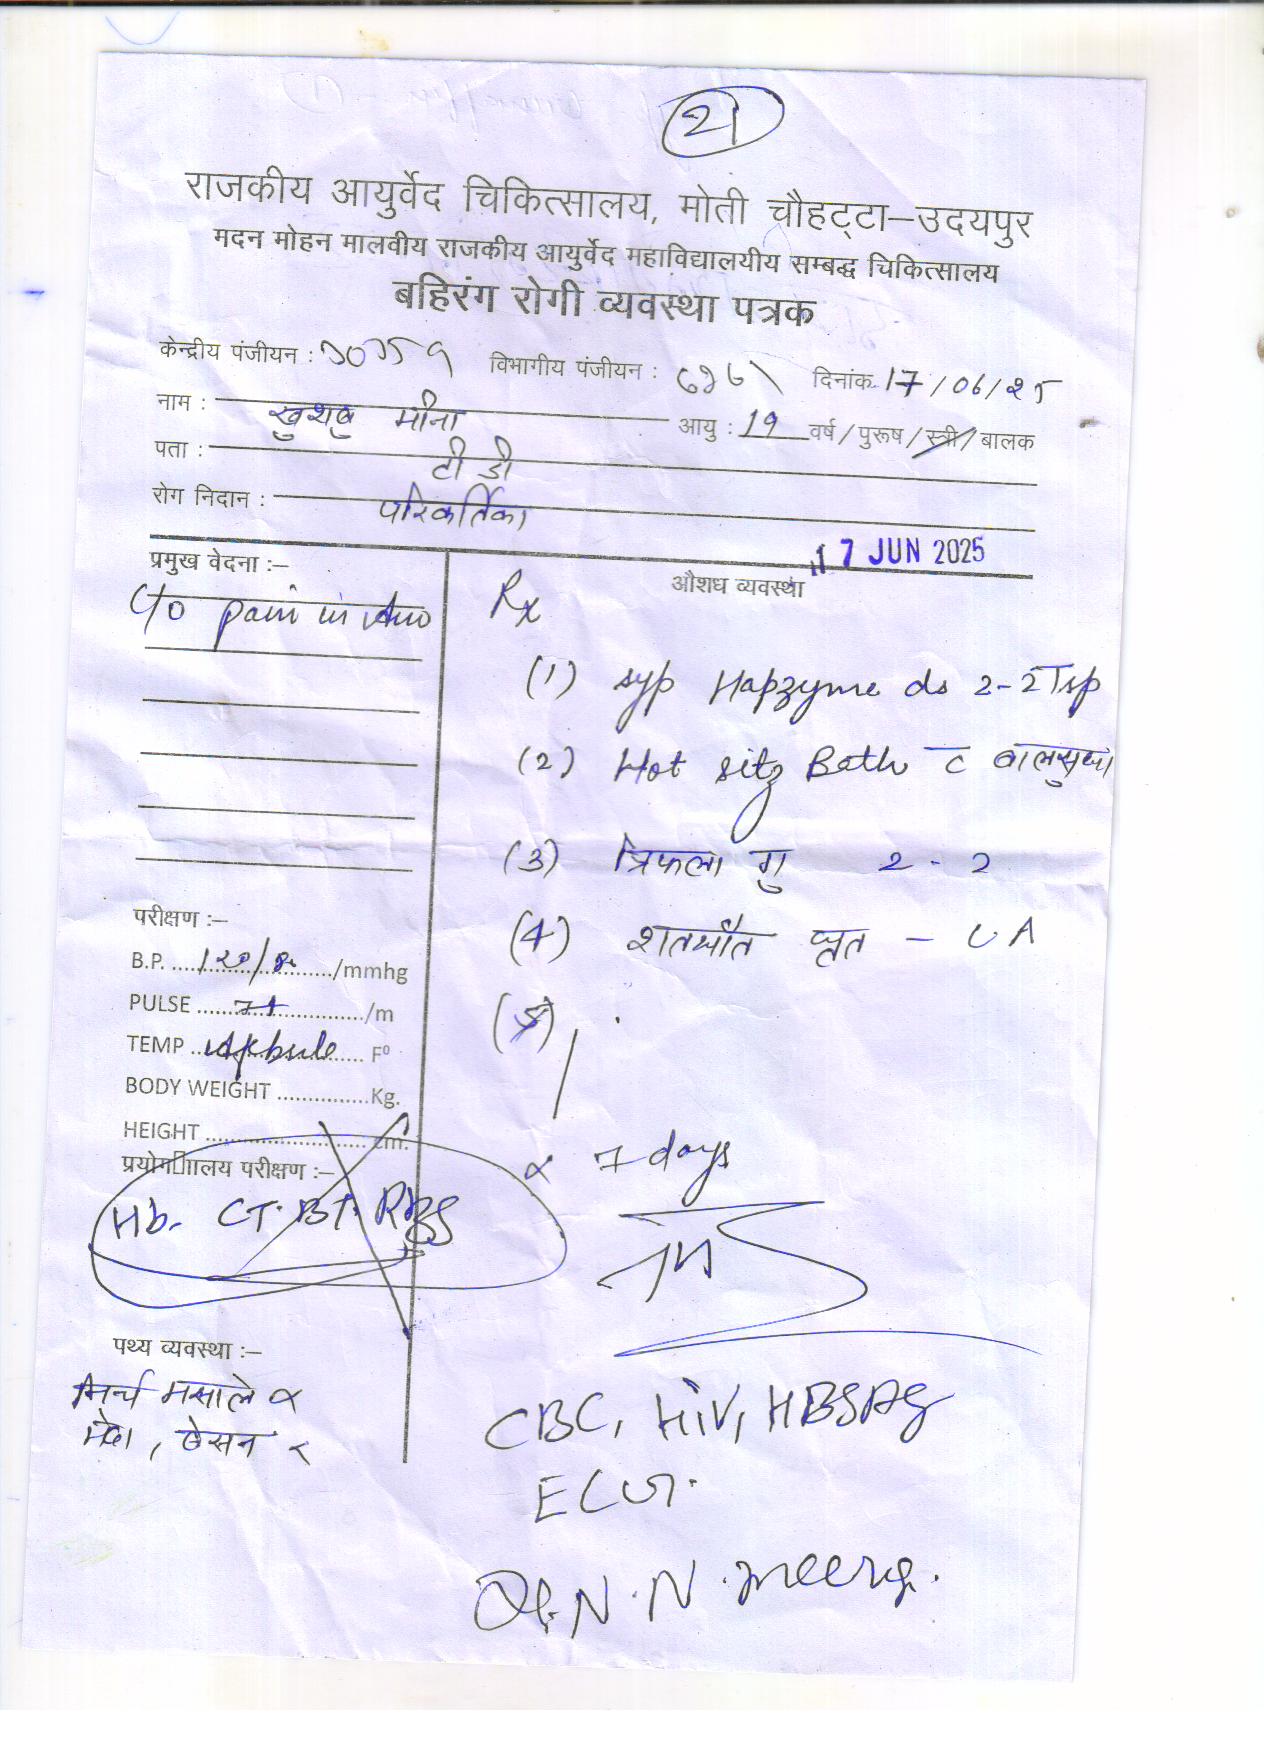 21
राजकीय आयुर्वेद चिकित्सालय, मोती चौहट्टा–उदयपुर
मदन मोहन मालवीय राजकीय आयुर्वेद महाविद्यालयीय सम्बद्ध चिकित्सालय
बहिरंग रोगी व्यवस्था पत्रक
केन्द्रीय पंजीयन : विभागीय पंजीयन : दिनांक 17/06/25
नाम : खुशबु मीना आयु : 19 वर्ष/पुरूष/स्त्री/बालक
पता : टी डी
रोग निदान : परिकर्तिका
17 JUN 2025
प्रमुख वेदना :– औशध व्यवस्था
C/o pain in Rx
(1) syp Hapzyme ds 2-2 Tsp
(2) Hot sitz Bath c
(3) त्रिफला गु 2 - 2
(4) शतधौत घृत – LA
(5)
परीक्षण :–
B.P. 120/80 /mmhg
PULSE /m
TEMP F⁰
BODY WEIGHT Kg.
HEIGHT cm.
x 7 days
परीक्षण :–
Hb. CT. BT. RBS
पथ्य व्यवस्था :–
मिर्च मसाले x
मैदा, बेसन x
CBC, HIV, HBSAg
ECG.
N. N. meena.